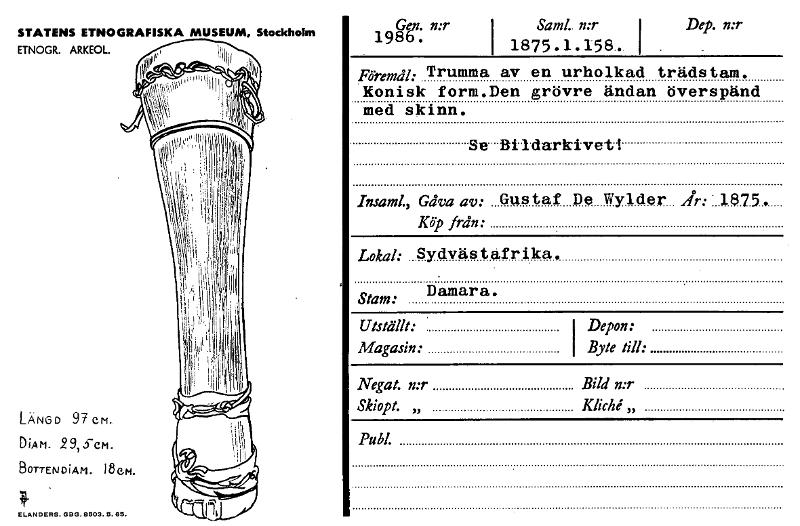 STATENS ETNOGRAFISKA MUSEUM, Stockholm
ETNOGR. ARKEOL.
LÄNGD 97 CM.
DIAM. 29,5 CM.
BOTTENDIAM. 18 CM.
ELANDERS. GBG. 8503. B. 65.
Gen. n:r
1986.
Saml. n:r
1875.1.158.
Dep. n:r
Föremål: Trumma av en urholkad trädstam.
Konisk form.Den grövre ändan överspänd
med skinn.
Se Bildarkivet!
Insaml., Gåva av: Gustaf De Wylder År: 1875.
Köp från:
Lokal: Sydvästafrika.
Stam: Damara.
Utställt: Depon:
Magasin: Byte till:
Negat. n:r Bild n:r
Skiopt. „ Kliché „
Publ.